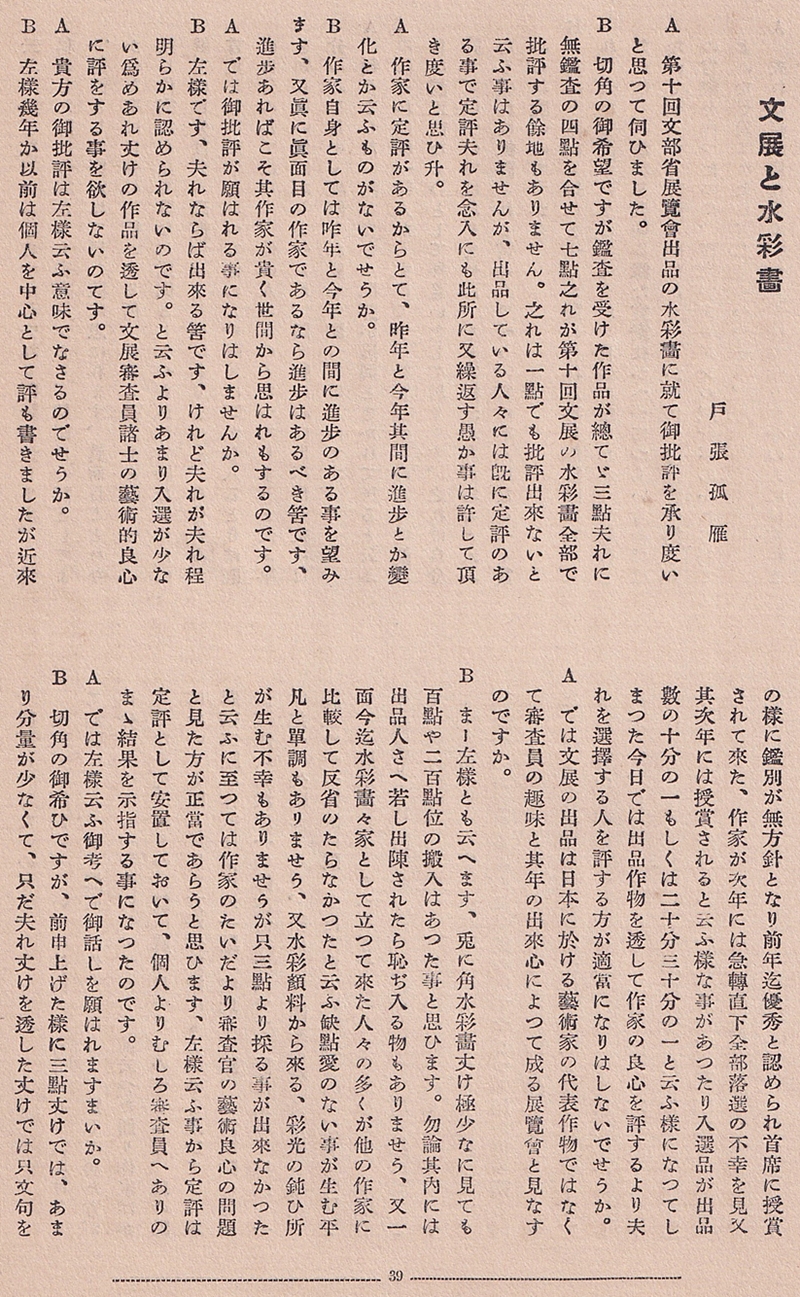 文展と水彩畵
戸張孤雁
A 第十回文部省展覽會出品の水彩畵に就て御批評を承り度い
と思つて伺ひました。
B 切角の御希望ですが鑑査を受けた作品が總てゞ三點夫れに
無鑑査の四點を合せて七點之れが第十回文展の水彩畵全部で
批評する餘地もありません。之れは一點でも批評出來ないと
云ふ事はありませんが、出品している人々には旣に定評のあ
る事で定評夫れを念入にも此所に又繰返す愚か事は許して頂
き度いと思ひ升。
A 作家に定評があるからとて、昨年と今年其間に進歩とか變
化とか云ふものがないでせうか。
B 作家自身としては昨年と今年との間に進歩のある事を望み
ます、又眞に眞面目の作家であるなら進歩はあるべき筈です、
進歩あればこそ其作家が貴く世間から思はれもするのです。
A では御批評が願はれる事になりはしませんか。
B 左樣です、夫れならば出來る筈です、けれど夫れが夫れ程
明らかに認められないのです。と云ふよりあまり入選が少な
い爲めあれ丈けの作品を透して文展審査員諸士の藝術的良心
に評をする事を欲しないのてす。
A 貴方の御批評は左樣云ふ意味でなさるのでせうか。
B 左樣幾年か以前は個人を中心として評も書きましたが近來
の樣に鑑別が無方針となり前年迄優秀と認められ首席に授賞
されて來た、作家が次年には急轉直下全部落選の不幸を見又
其次年には授賞されると云ふ樣な事があつたり入選品が出品
數の十分の一もしくは二十分三十分の一と云ふ樣になつてし
まつた今日では出品作物を透して作家の良心を評するより夫
れを選擇する人を評する方が適當になりはしないでせうか。
A では文展の出品は日本に於ける藝術家の代表作物ではなく
て審査員の趣味と其年の出來心によつて成る展覽會と見なす
のですか。
B まー左樣とも云へます、兎に角水彩畵丈け極少なに見ても
百點や二百點位の搬入はあつた事と思ひます。勿論其内には
出品人さへ若し出陳されたら恥ぢ入る物もありませう、又一
面今迄水彩畵々家として立つて來た人々の多くが他の作家に
比較して反省のたらなかつたと云ふ缺點愛のない事が生む平
凡と單調もありませう、又水彩顏料から來る、彩光の鈍ひ所
が生む不幸もありませうが只三點より採る事が出來なかつた
と云ふに至つては作家のたいだより審査官の藝術良心の問題
と見た方が正當であらうと思ひます、左樣云ふ事から定評は
定評として安置しておいて、個人よりむしろ審査員へありの
まゝ結果を示指する事になつたのです。
A では左樣云ふ御考へで御話しを願はれますまいか。
B 切角の御希ひですが、前申上げた樣に三點丈けでは、あま
り分量が少なくて、只だ夫れ丈けを透した丈けでは只文句を
39